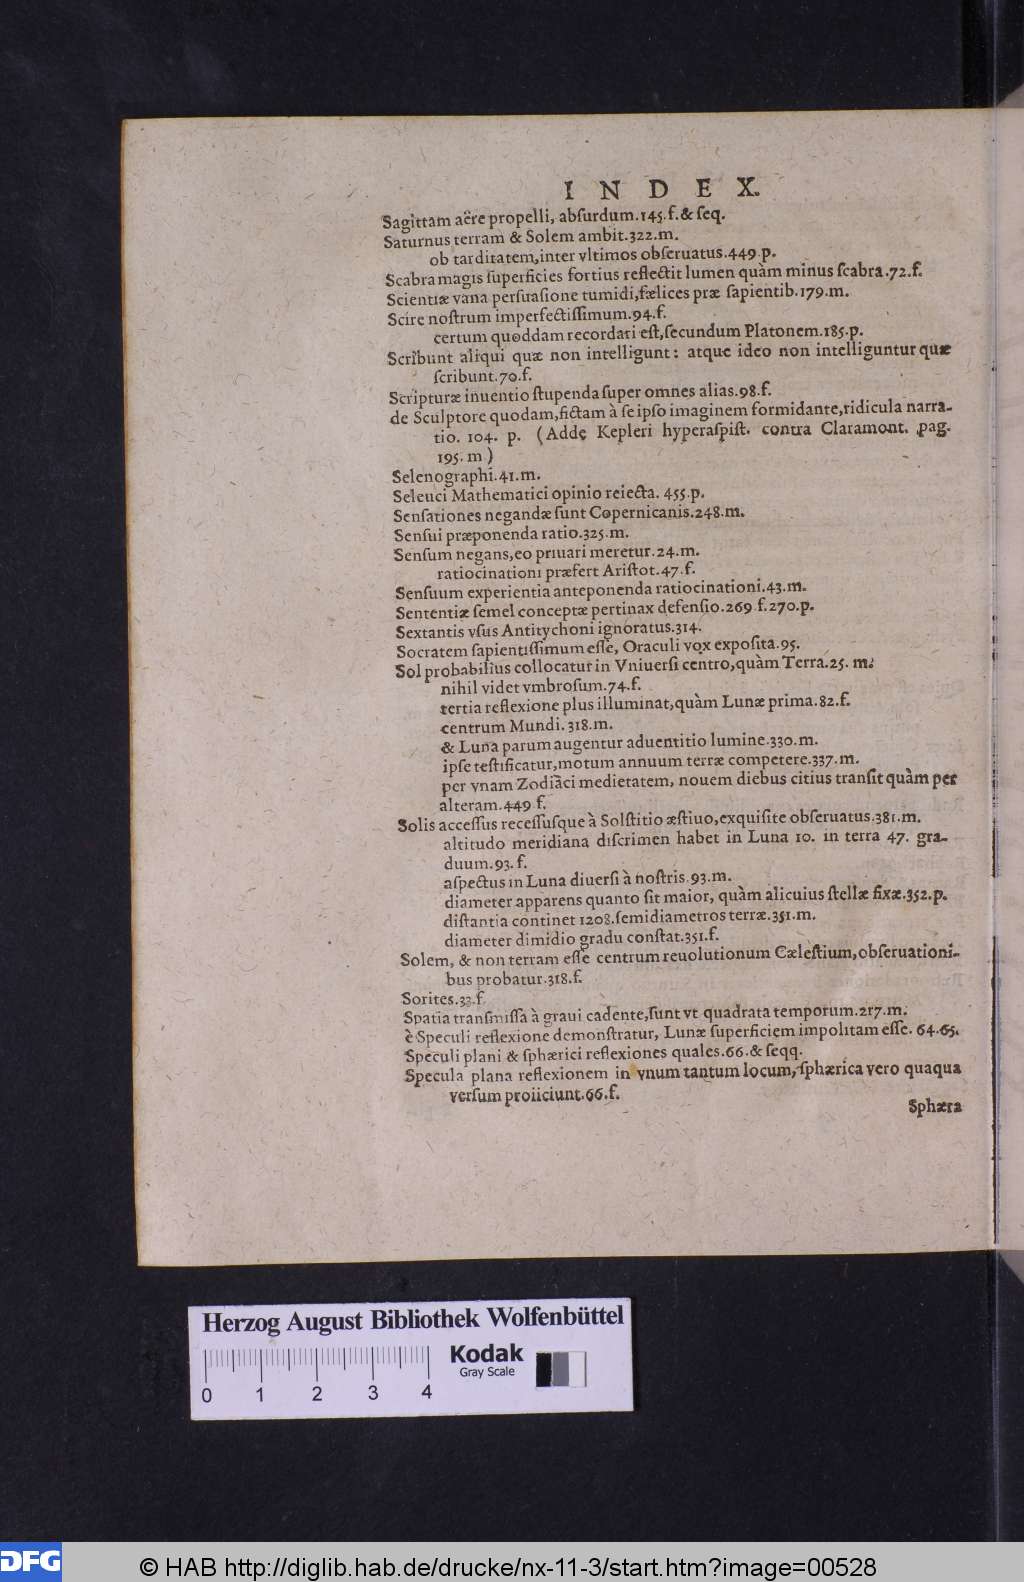 INDEX.
Sagittam aëre propelli, abſurdum.145.f.& ſeq.
Saturnus terram & Solem ambit.322.m.
ob tarditatem,inter vltimos obſeruatus.449.p.
Scabra magis ſuperficies fortius reflectit lumen quàm minus ſcabra.72.f.
Scientiæ vana perſuaſione tumidi,fælices præ ſapientib.179.m.
Scire noſtrum imperfectiſſimum.94.f.
certum quoddam recordari eſt,ſecundum Platonem.185.p.
Scribunt aliqui quæ non intelligunt: atque ideo non intelliguntur quæ
ſcribunt.70.f.
Scripturæ inuentio ſtupenda ſuper omnes alias.98.f.
de Sculptore quodam,fictam à ſe ipſo imaginem formidante,ridicula narra-
tio. 104. p. (Adde Kepleri hyperaſpiſt. contra Claramont. pag.
195. m )
Selenographi.41.m.
Seleuci Mathematici opinio reiecta. 455.p.
Senſationes negandæ ſunt Copernicanis.248.m.
Senſui præponenda ratio.325.m.
Senſum negans,eo priuari meretur.24.m.
ratiocinationi præfert Ariſtot.47.f.
Senſuum experientia anteponenda ratiocinationi.43.m.
Sententiæ ſemel conceptæ pertinax defenſio.269.f.270.p.
Sextantis vſus Antitychoni ignoratus.314.
Socratem ſapientiſſimum eſſe, Oraculi vox expoſita.95.
Sol probabilius collocatur in Vniuerſi centro,quàm Terra.25. m.
nihil videt vmbroſum.74.f.
tertia reflexione plus illuminat,quàm Lunæ prima.82.f.
centrum Mundi.318.m.
& Luna parum augentur aduentitio lumine.330.m.
ipſe teſtificatur,motum annuum terræ competere.337.m.
per vnam Zodiaci medietatem, nouem diebus citius tranſit quàm per
alteram.449 f.
Solis acceſſus receſſusque à Solſtitio æſtiuo,exquiſite obſeruatus.381.m.
altitudo meridiana diſcrimen habet in Luna 10. in terra 47. gra-
duum.93.f.
aſpectus in Luna diuerſi à noſtris.93.m.
diameter apparens quanto ſit maior, quàm alicuius ſtellæ fixæ.352.p.
diſtantia continet 1208.ſemidiametros terræ.351.m.
diameter dimidio gradu conſtat.351.f.
Solem, & non terram eſſe centrum reuolutionum Cæleſtium,obſeruationi-
bus probatur.318.f.
Sorites.33.f.
Spatia tranſmiſſa à graui cadente,ſunt vt quadrata temporum.217.m.
è Speculi reflexione demonſtratur, Lunæ ſuperficiem impolitam eſſe. 64.65.
Speculi plani & ſphærici reflexiones quales.66.& ſeqq.
Specula plana reflexionem in vnum tantum locum, ſphærica vero quaqua
verſum proiiciunt.66.f.
Sphæra
Herzog August Bibliothek Wolfenbüttel
Kodak
Gray Scale
0 1 2 3 4
DFG
© HAB http://diglib.hab.de/drucke/nx-11-3/start.htm?image=00528